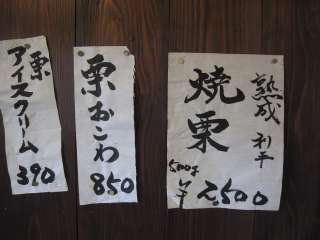 熟成 利平
焼栗
500g
￥2,500
栗おこわ
850
栗
アイスクリーム
390